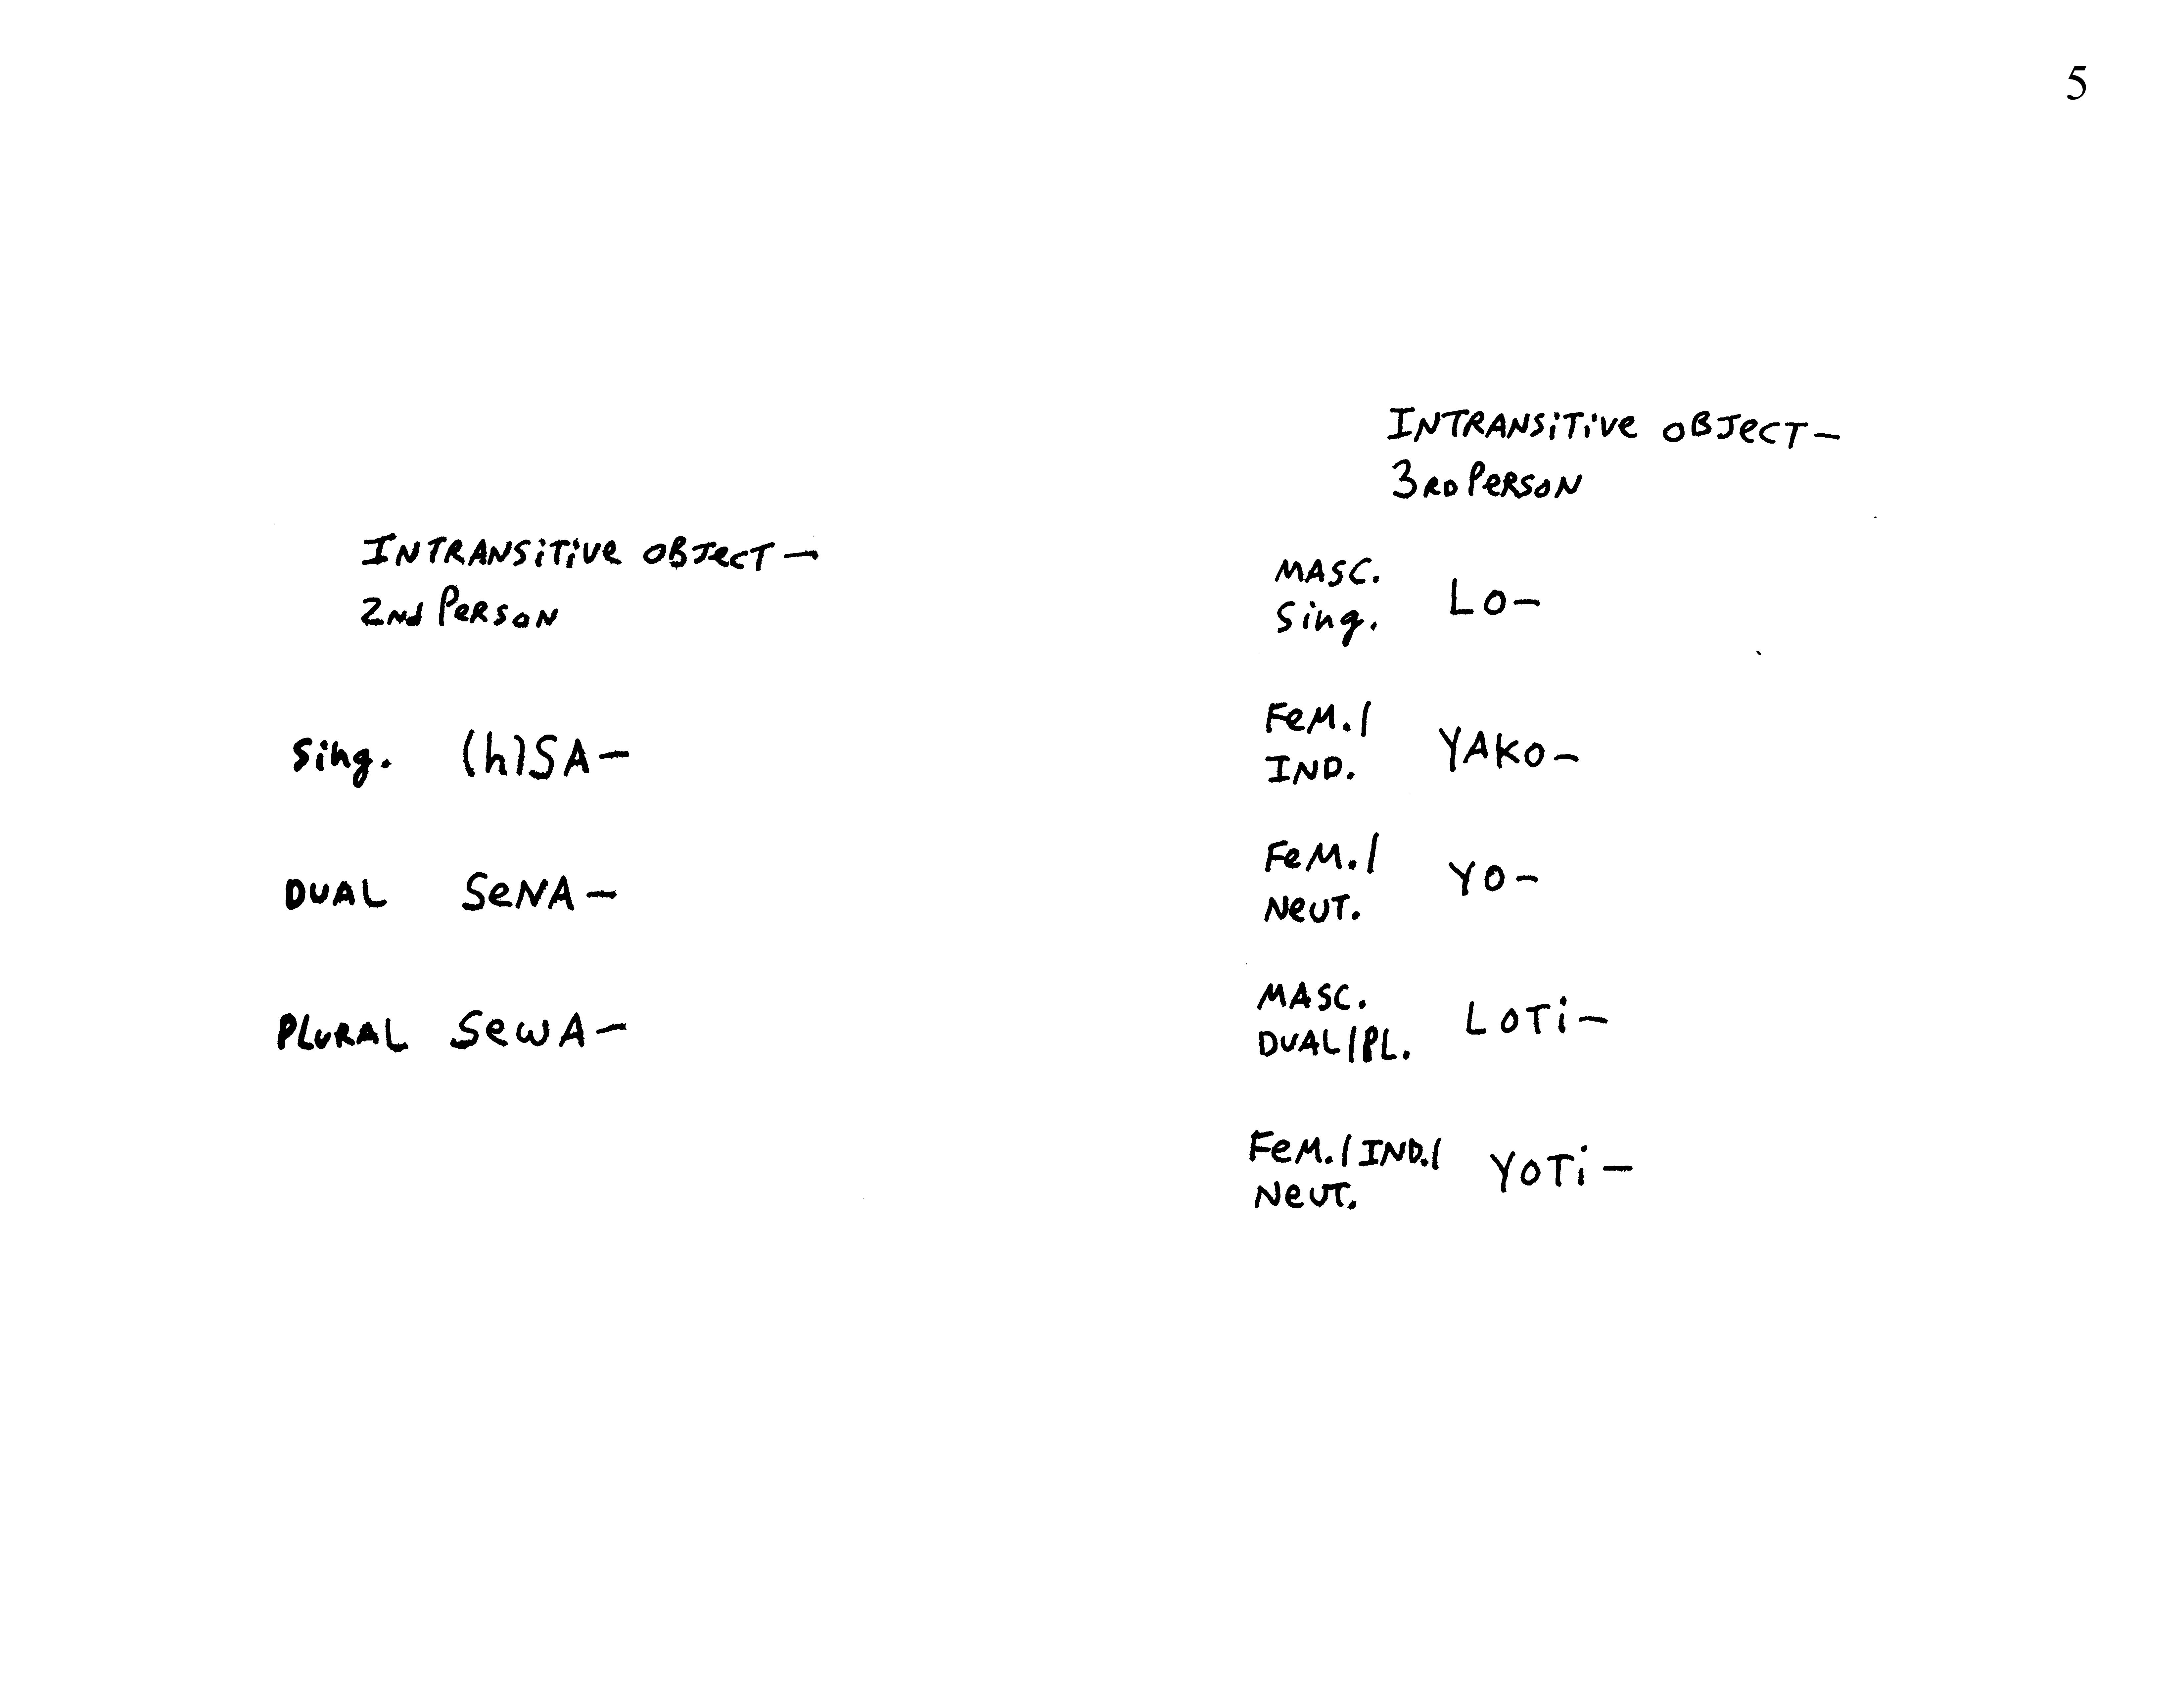 5
INTRANSiTiVe OBJecT—
2nd PeRSON
Sing. (h)SA—
DUAL SeNA—
PLURAL SewA—
INTRANSiTiVe OBJecT—
3RD PeRSON
MASC.
Sing. LO—
FeM./
IND. YAKO—
FeM./
NeUT. YO—
MASC.
DUAL/PL. LOTi—
FeM./IND./
NeUT. YOTi—